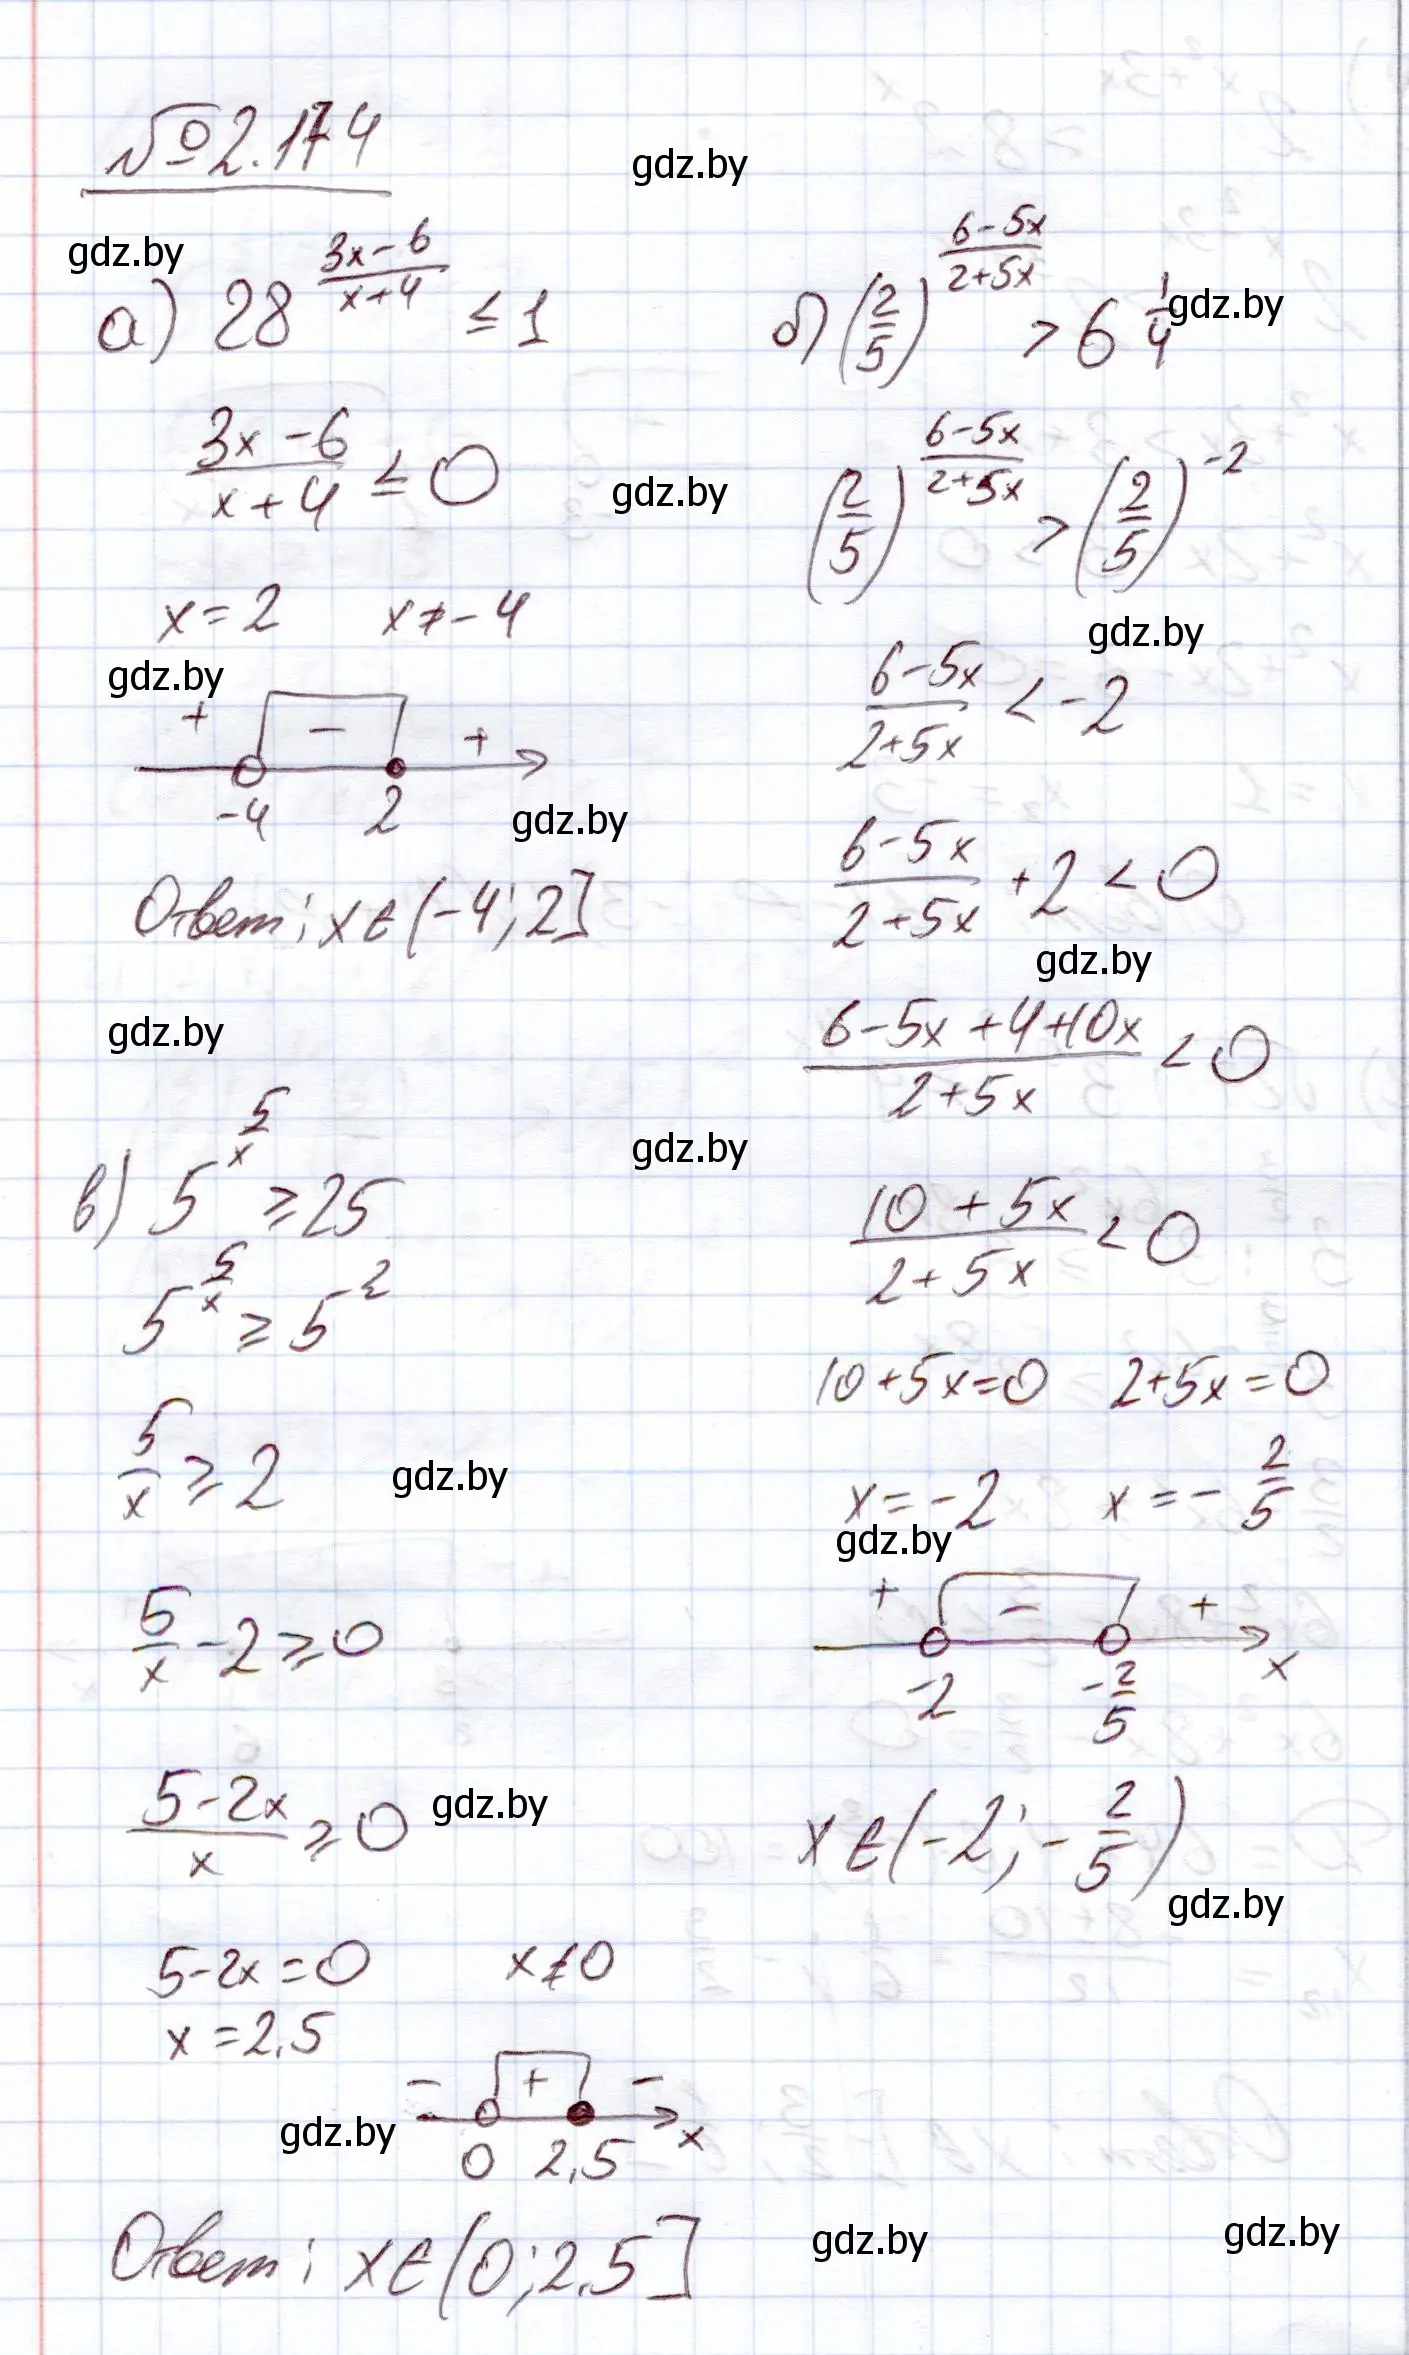 №2.174
gdz.by
gdz.by
а) 28^((3x-6)/(x+4)) ≤ 1
(3x-6)/(x+4) ≤ 0
gdz.by
x = 2   x ≠ -4
gdz.by
+ - +
-4 2
gdz.by
Ответ: x ∈ (-4; 2]
gdz.by
gdz.by
в) 5^(5/x) ≥ 25
5^(5/x) ≥ 5^2
5/x ≥ 2
gdz.by
5/x - 2 ≥ 0
(5-2x)/x ≥ 0
gdz.by
5-2x = 0   x ≠ 0
x = 2,5
- + -
gdz.by
0 2,5 x
Ответ: x ∈ (0; 2,5]
gdz.by
б) (2/5)^((6-5x)/(2+5x)) > 6 1/4
gdz.by
(2/5)^((6-5x)/(2+5x)) > (2/5)^(-2)
gdz.by
(6-5x)/(2+5x) < -2
(6-5x)/(2+5x) + 2 < 0
gdz.by
(6-5x+4+10x)/(2+5x) < 0
(10+5x)/(2+5x) < 0
10+5x=0   2+5x=0
x = -2   x = -2/5
gdz.by
+ - +
-2 -2/5 x
x ∈ (-2; -2/5)
gdz.by
gdz.by